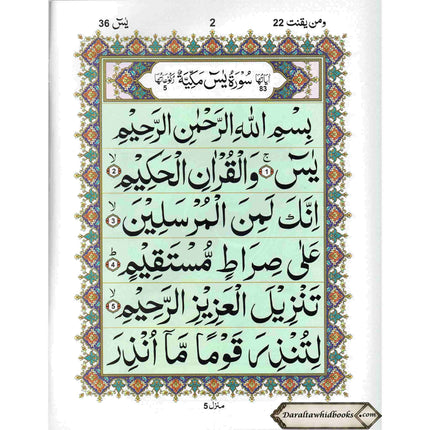 ومن يقنت 22 2 يٰسٓ 36
اٰيَاتُهَا 83 سُوْرَةُ يٰسٓ مَكِّيَّةٌ رُكُوْعَاتُهَا 5
بِسْمِ اللّٰهِ الرَّحْمٰنِ الرَّحِيْمِ
يٰسٓ ۚ 1 وَالْقُرْاٰنِ الْحَكِيْمِ ۙ 2
اِنَّكَ لَمِنَ الْمُرْسَلِيْنَ ۙ 3
عَلٰى صِرَاطٍ مُّسْتَقِيْمٍ ؕ 4
تَنْزِيْلَ الْعَزِيْزِ الرَّحِيْمِ ۙ 5
لِتُنْذِرَ قَوْمًا مَّاۤ اُنْذِرَ
منزل 5
Daraltawhidbooks.com